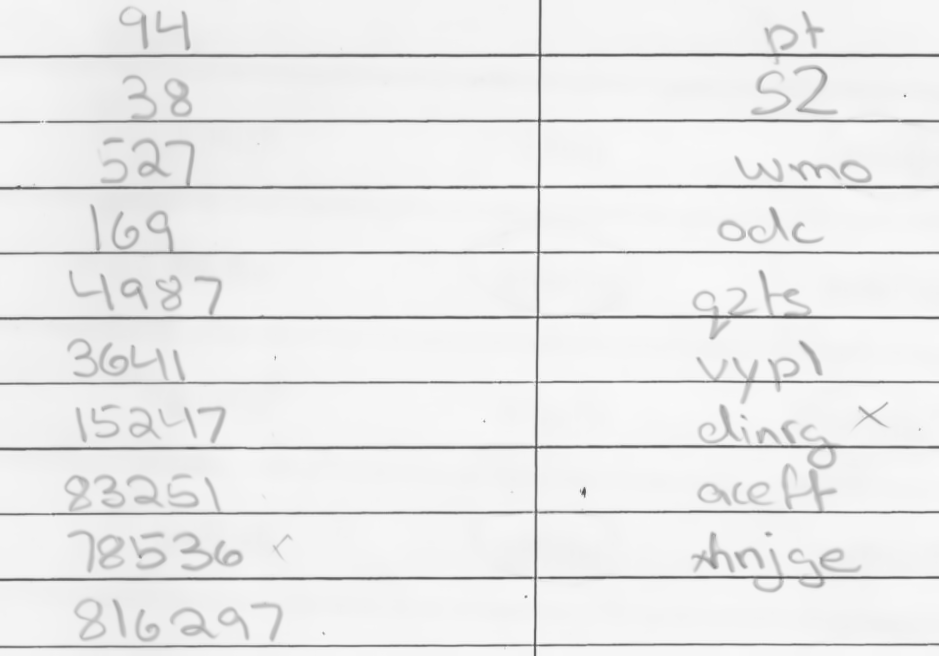 94 pt
38 S2
527 wmo
169 odc
4987 qzts
3641 vypl
15247 dinrg ×
83251 aceff
78536 xhnjge
816297